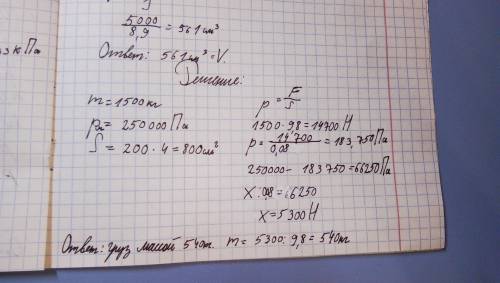 5000/8,9 = 561 см³
Ответ: 561 см³ = V.
Решение:
m = 1500 кг
p = 250 000 Па
S = 200 · 4 = 800 см²
p = F/S
1500 · 9,8 = 14700 Н
p = 14 700/0,08 = 183,750 Па
250000 - 183 750 = 66250 Па
X : 0,08 = 66250
X = 5300 Н
Ответ: груз массой 540 кг. m = 5300 : 9,8 = 540 кг